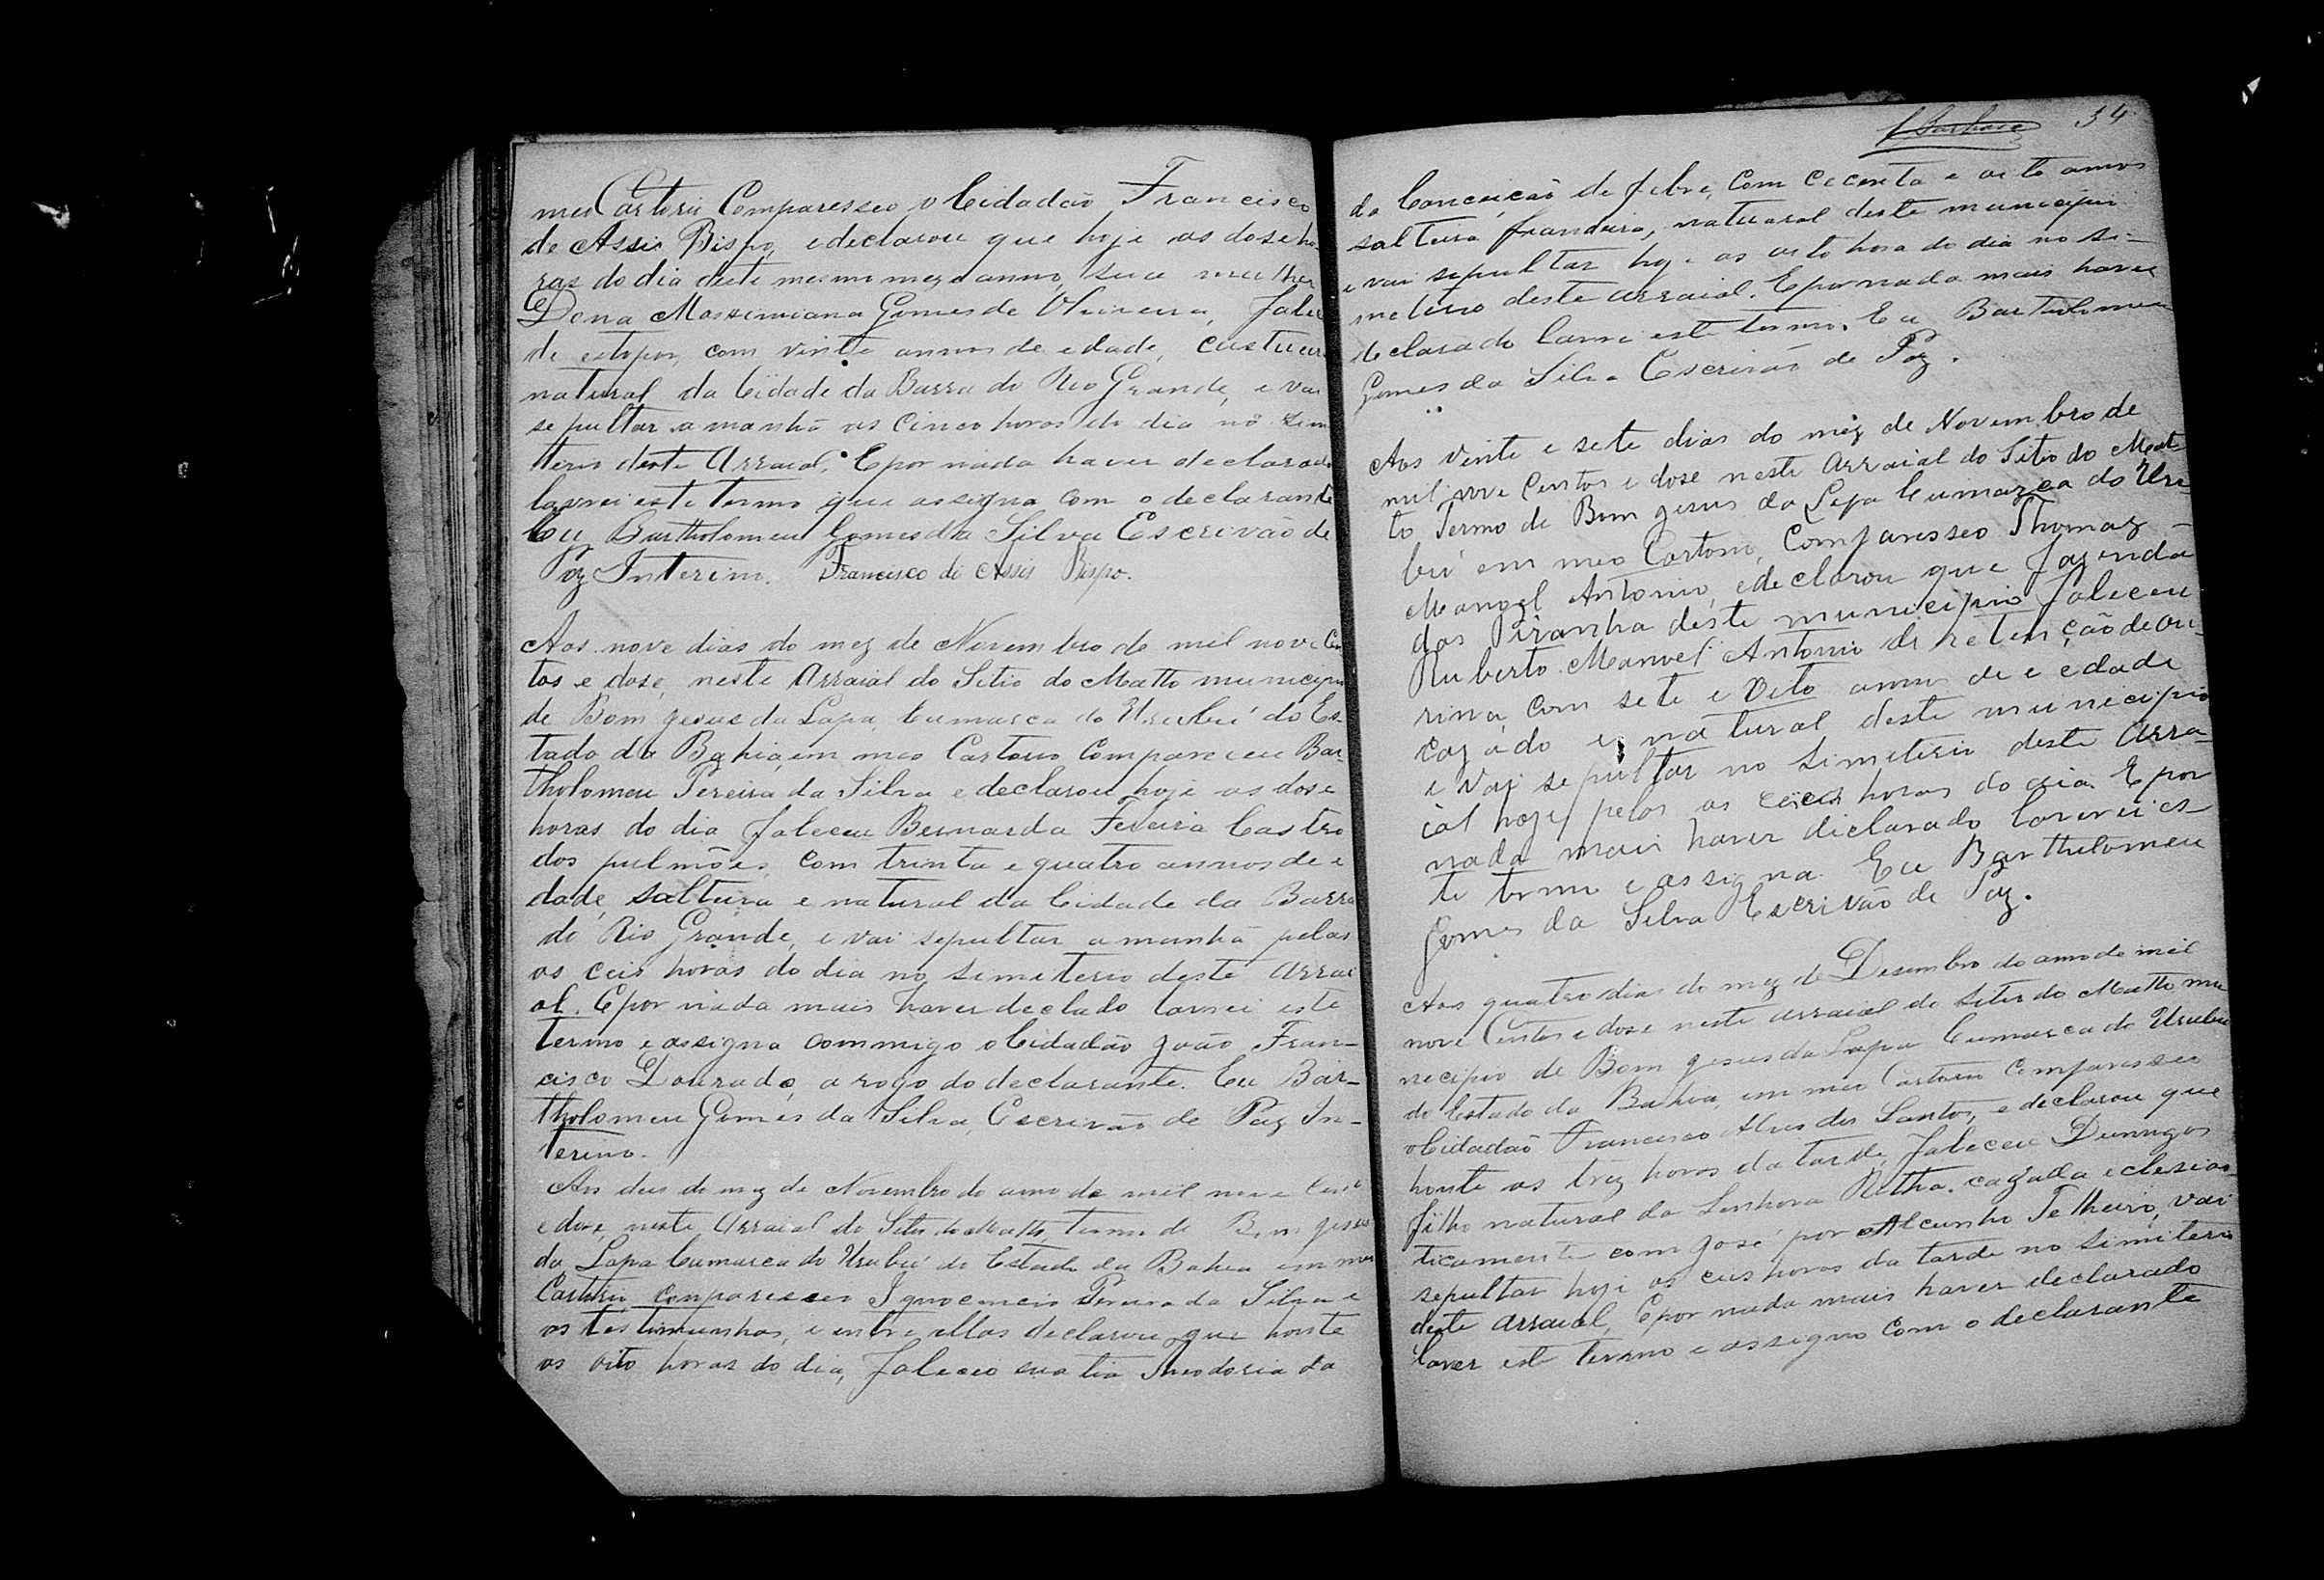 meu Cartorio Comparesseo o Cidadão Francisco
de Assis Bispo, e declarou que hoje as dose ho-
ras do dia deste mesmo mez e anno, sua mulher
Dona Massimiana Gomes de Oliveira, fale
de estopor, com vinte annos de edade, custurei
natural da Cidade da Barra do Rio Grande, e vai
sepultar a manhã as cinco horas do dia no sim
terio deste Arraial. E por nada haver declarado
lavrei este termo que assigna com o declarante
Eu Bartholomeu Gomes da Silva Escrivão de
Paz Interino. Francisco de Assis Bispo.
Aos nove dias do mez de Novembro de mil nove Cen
tos e dose, neste Arraial do Sitio do Matto municipio
de Bom Jesus da Lapa, Cumarca do Urubú do Es-
tado da Bahia, em meo Cartorio Compareceu Bar-
tholomeu Pereira da Silva e declarou hoje as dose
horas do dia faleceu Bernarda Fereira Castro
dos pulmões, com trinta e quatro annos de e
dade, solteira e natural da Cidade da Barra
do Rio Grande, e vai sepultar a manhã pelas
as ceis horas do dia no simeterio deste Arrai
al. E por nada mais haver declado lavrei este
termo e assigna commigo o Cidadão João Fran-
cisco Dourado, a rogo do declarante. Eu Bar-
tholomeu Gomes da Silva, Escrivão de Paz In-
terino.
Aos deis do mez de Novembro do anno de mil nove Cent
e dose, neste Arraial do Sitio do Matto, termo de Bom Jesus
da Lapa Cumarca do Urubú do Estado da Bahia em meo
Cartorio comparesseo Ignocencio Pereira da Silva e
as testimunhas, e entre ellas declarou que honte
as oito horas do dia, faleceo sua tia Theodoria da
J Barbosa 34
da Conceição de febre, com cecenta e oito annos
solteira fiandeira, natuaral deste municipio
e vai sepultar hoje as oito hora do dia no si-
meterio deste arraial. E por nada mais haver
declarado lavrei este termo. Eu Bartholomeu
Gomes da Silva Escrivão de Paz.
Aos vinte e sete dias do mêz de Novembro de
mil nove centos e dose neste Arraial do Sitio do Mat-
to Termo de Bom Jesus da Lapa Cumarca do Uru-
bú em meo Cartorio, Comparesseo Thomaz
Manoel Antonio, e declarou que fazenda
das Piranha deste municipio faleceu
Ruberto Manoel Antonio di retenção de ou-
rina, com sete e oito anno de e edade
cazado e natural deste municipio
e vai sepultar no simeterio deste Arra-
ial hoje pelas as ceis horas do dia. E por
nada mais haver diclarado lavrei es-
te termo e assigna. Eu Bartholomeu
Gomes da Silva Escrivão de Paz.
Aos quatro dias do mez de Desembro do anno de mil
nove Centos e dose neste arraial do Sitio do Matto mu
necipio de Bom Jesus da Lapa Cumarca do Urubu
do Estado da Bahia, em meo Cartorio Comparesseo
o Cidadão Francisco Alves dos Santos, e declarou que
honte as trez horas da tarde, faleceu Dumingos
filho natural da Senhora Ritha. cazada eclesias-
ticamente com José por Alcunho Telheiro, vai
sepultar hoje as ceis horas da tarde no simiterio
deste arraial, E por nada mais haver declarado
lavrer este termo e assigno com o declarante